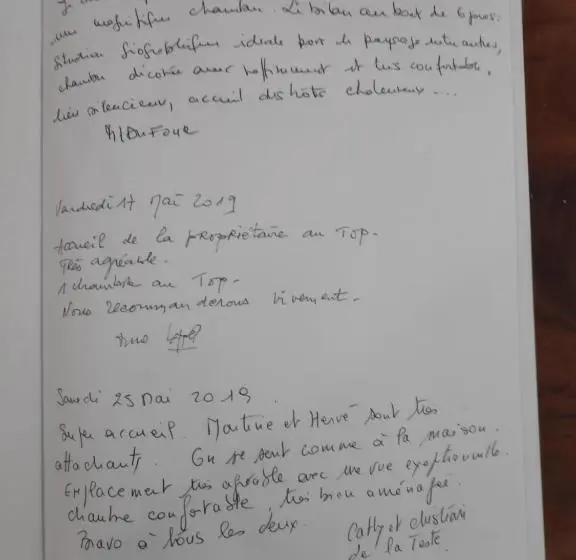 un magnifique chambre. Le bilan au bout de 6 jours:
situation géographique idéale port de paysage entre autres,
chambre décorée avec raffinement et très confortable,
lieu silencieux, accueil des hôtes chaleureux....
Vendredi 17 Mai 2019
Accueil de la propriétaire au Top.
Très agréable.
1 chambre au Top.
Nous recommanderons vivement.
Samedi 25 Mai 2019.
Super accueil. Martine et Hervé sont très
attachants. On se sent comme à la maison.
Emplacement très agréable avec une vue exceptionnelle.
chambre confortable, très bien aménagée.
Bravo à tous les deux.
Cathy et Christian
de la Teste